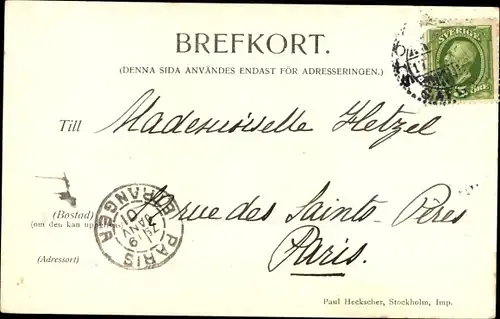 BREFKORT.
(DENNA SIDA ANVÄNDES ENDAST FÖR ADRESSERINGEN.)
SVERIGE
5 ÖRE
Till Mademoiselle Hetzel
(Bostad) rue des Saints-Pères
(om des kan
Paris.
(Adressort)
PARIS ETRANGER
JANV
01
Paul Heckscher, Stockholm, Imp.